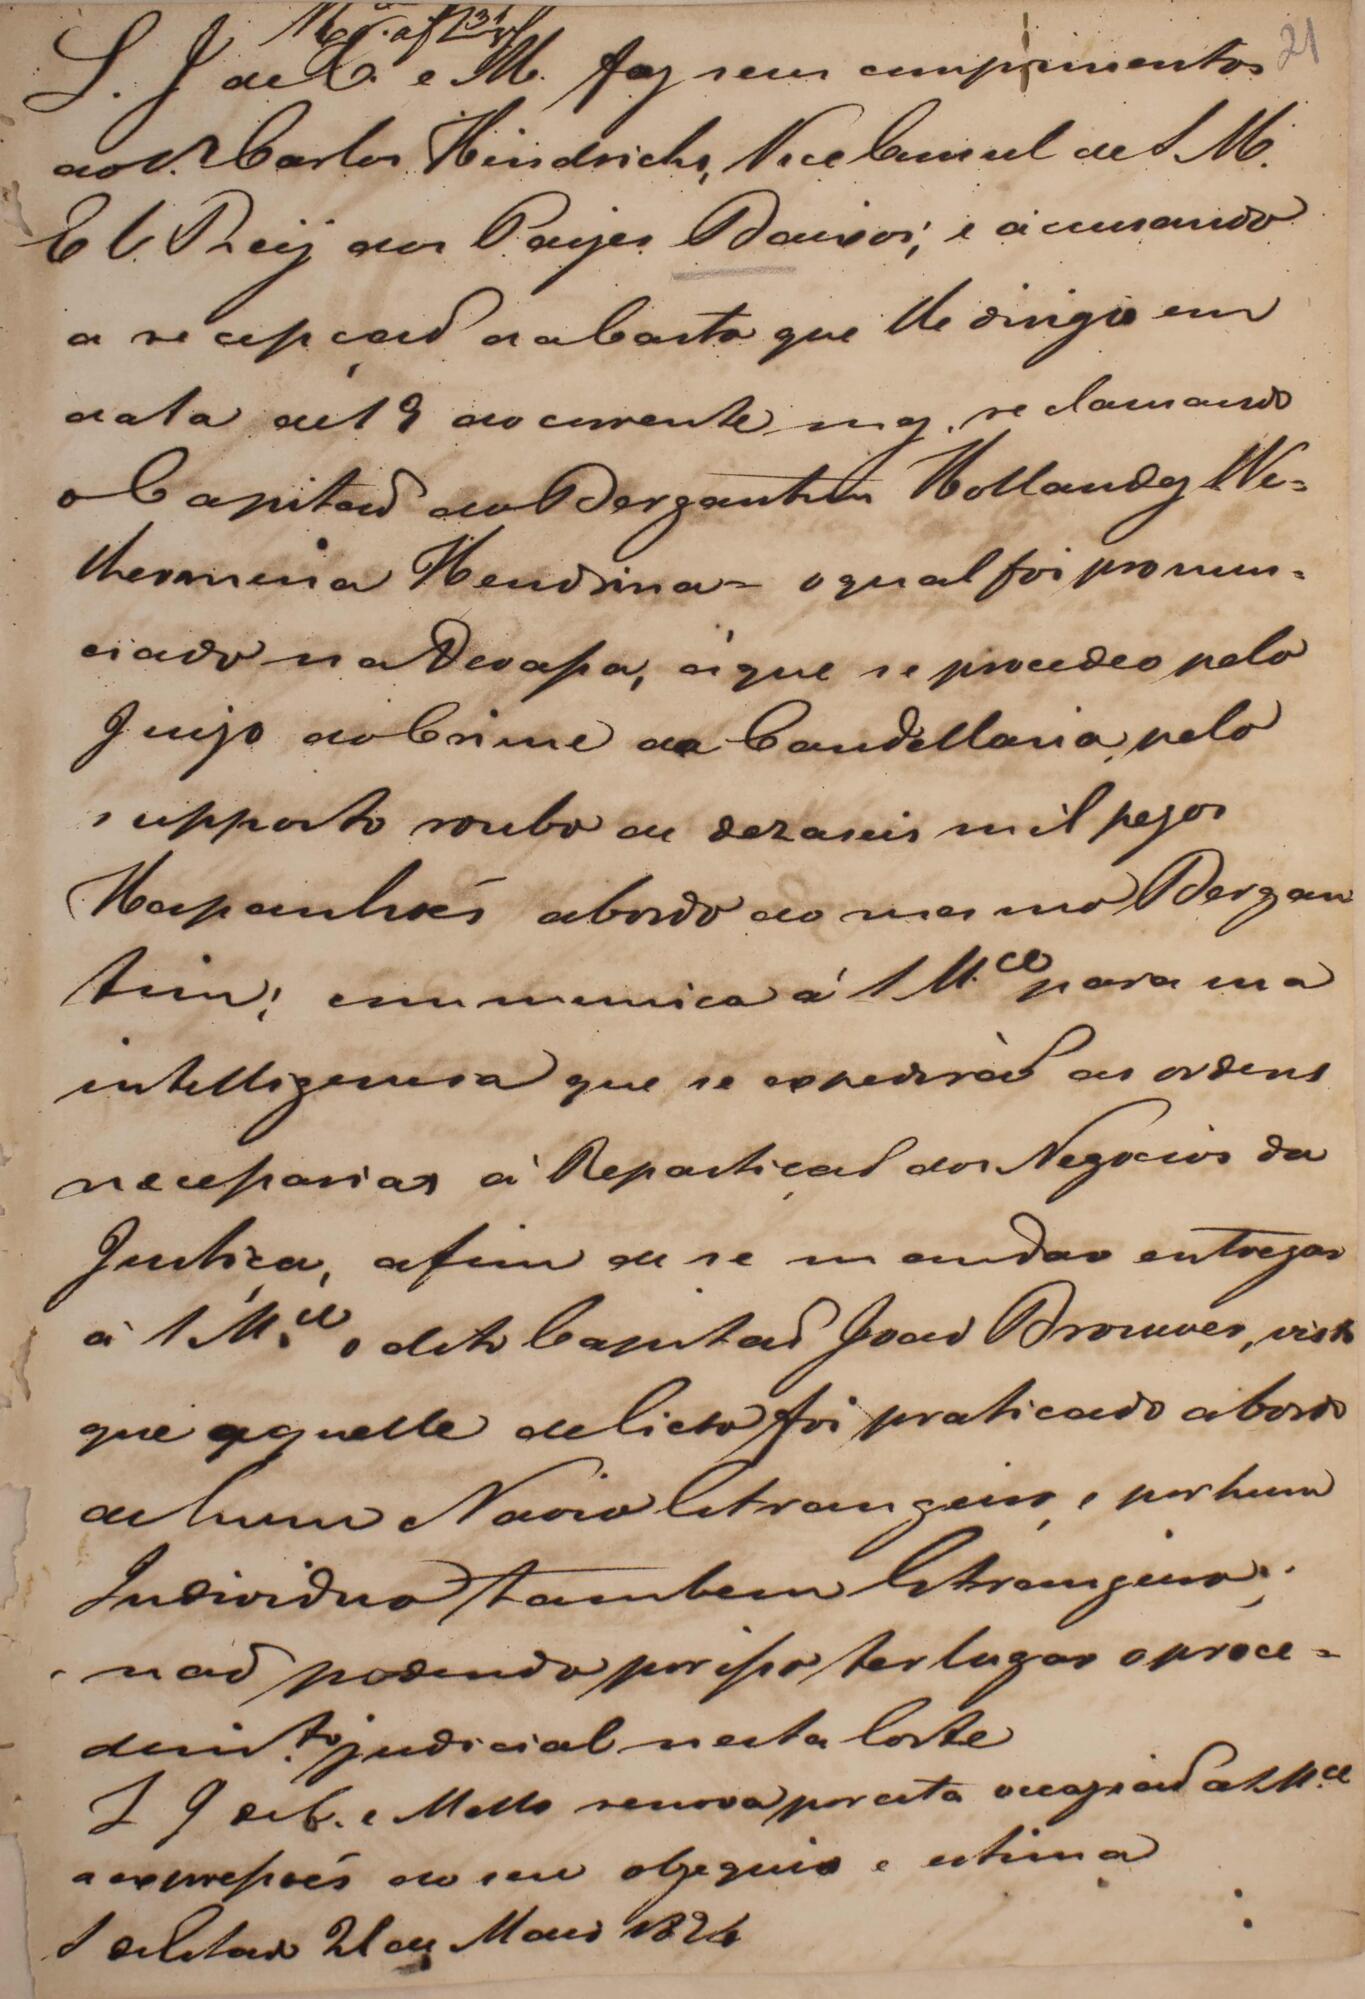 21
L. J. de C. e M. faz seus cumprimentos
ao Sr. Carlos Hindrichs, Vice Consul de S. M.
El Reij dos Paizes Baixos; e accusando
a recepçaõ da Carta que lhe dirigio em
data de 19 do corrente mez, reclamando
o Capitaõ do Bergantim Hollandez We=
lhermina Hendrina = o qual foi pronun=
ciado na Devassa, á que se procedeo pelo
Juizo do Crime da Candellaria, pelo
supposto roubo de dezaseis mil pezos
Hespanhoés abordo do mesmo Bergan
tim; communica á S M.ce para sua
intelligencia que se expediraõ as ordens
necessarias á Repartiçaõ dos Negocios da
Justiça, afim de se mandar entregar
á S M.ce o dito Capitaõ Joaõ Brouwer, visto
que aquelle delicto foi praticado abordo
de hum Navio Estrangeiro, e por hum
Individuo tambem Estrangeiro;
naõ podendo por isso ter lugar o proce=
dim.to judicial nesta Corte
L J de C. e Mello renova por esta occaziaõ a S M.ce
as expressoés do seu obzequio e estima
S de Estado 21 de Maio 1824